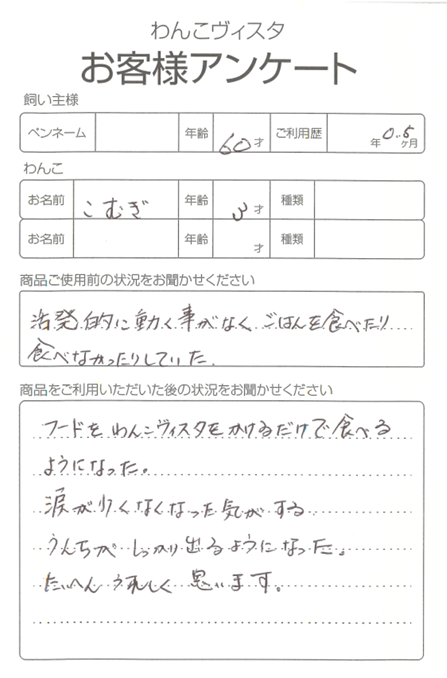 わんこヴィスタ
お客様アンケート
飼い主様
ペンネーム 年齢 60才 ご利用歴 年 0.5ヶ月
わんこ
お名前 こむぎ 年齢 3才 種類
お名前 年齢 才 種類
商品ご使用前の状況をお聞かせください
活発的に動く事がなくごはんを食べたり
食べなかったりしていた.
商品をご利用いただいた後の状況をお聞かせください
フードをわんこヴィスタをかけるだけで食べる
ようになった。
涙が少くなくなった気がする
うんちがしっかり出るようになった。
たいへんうれしく思います。